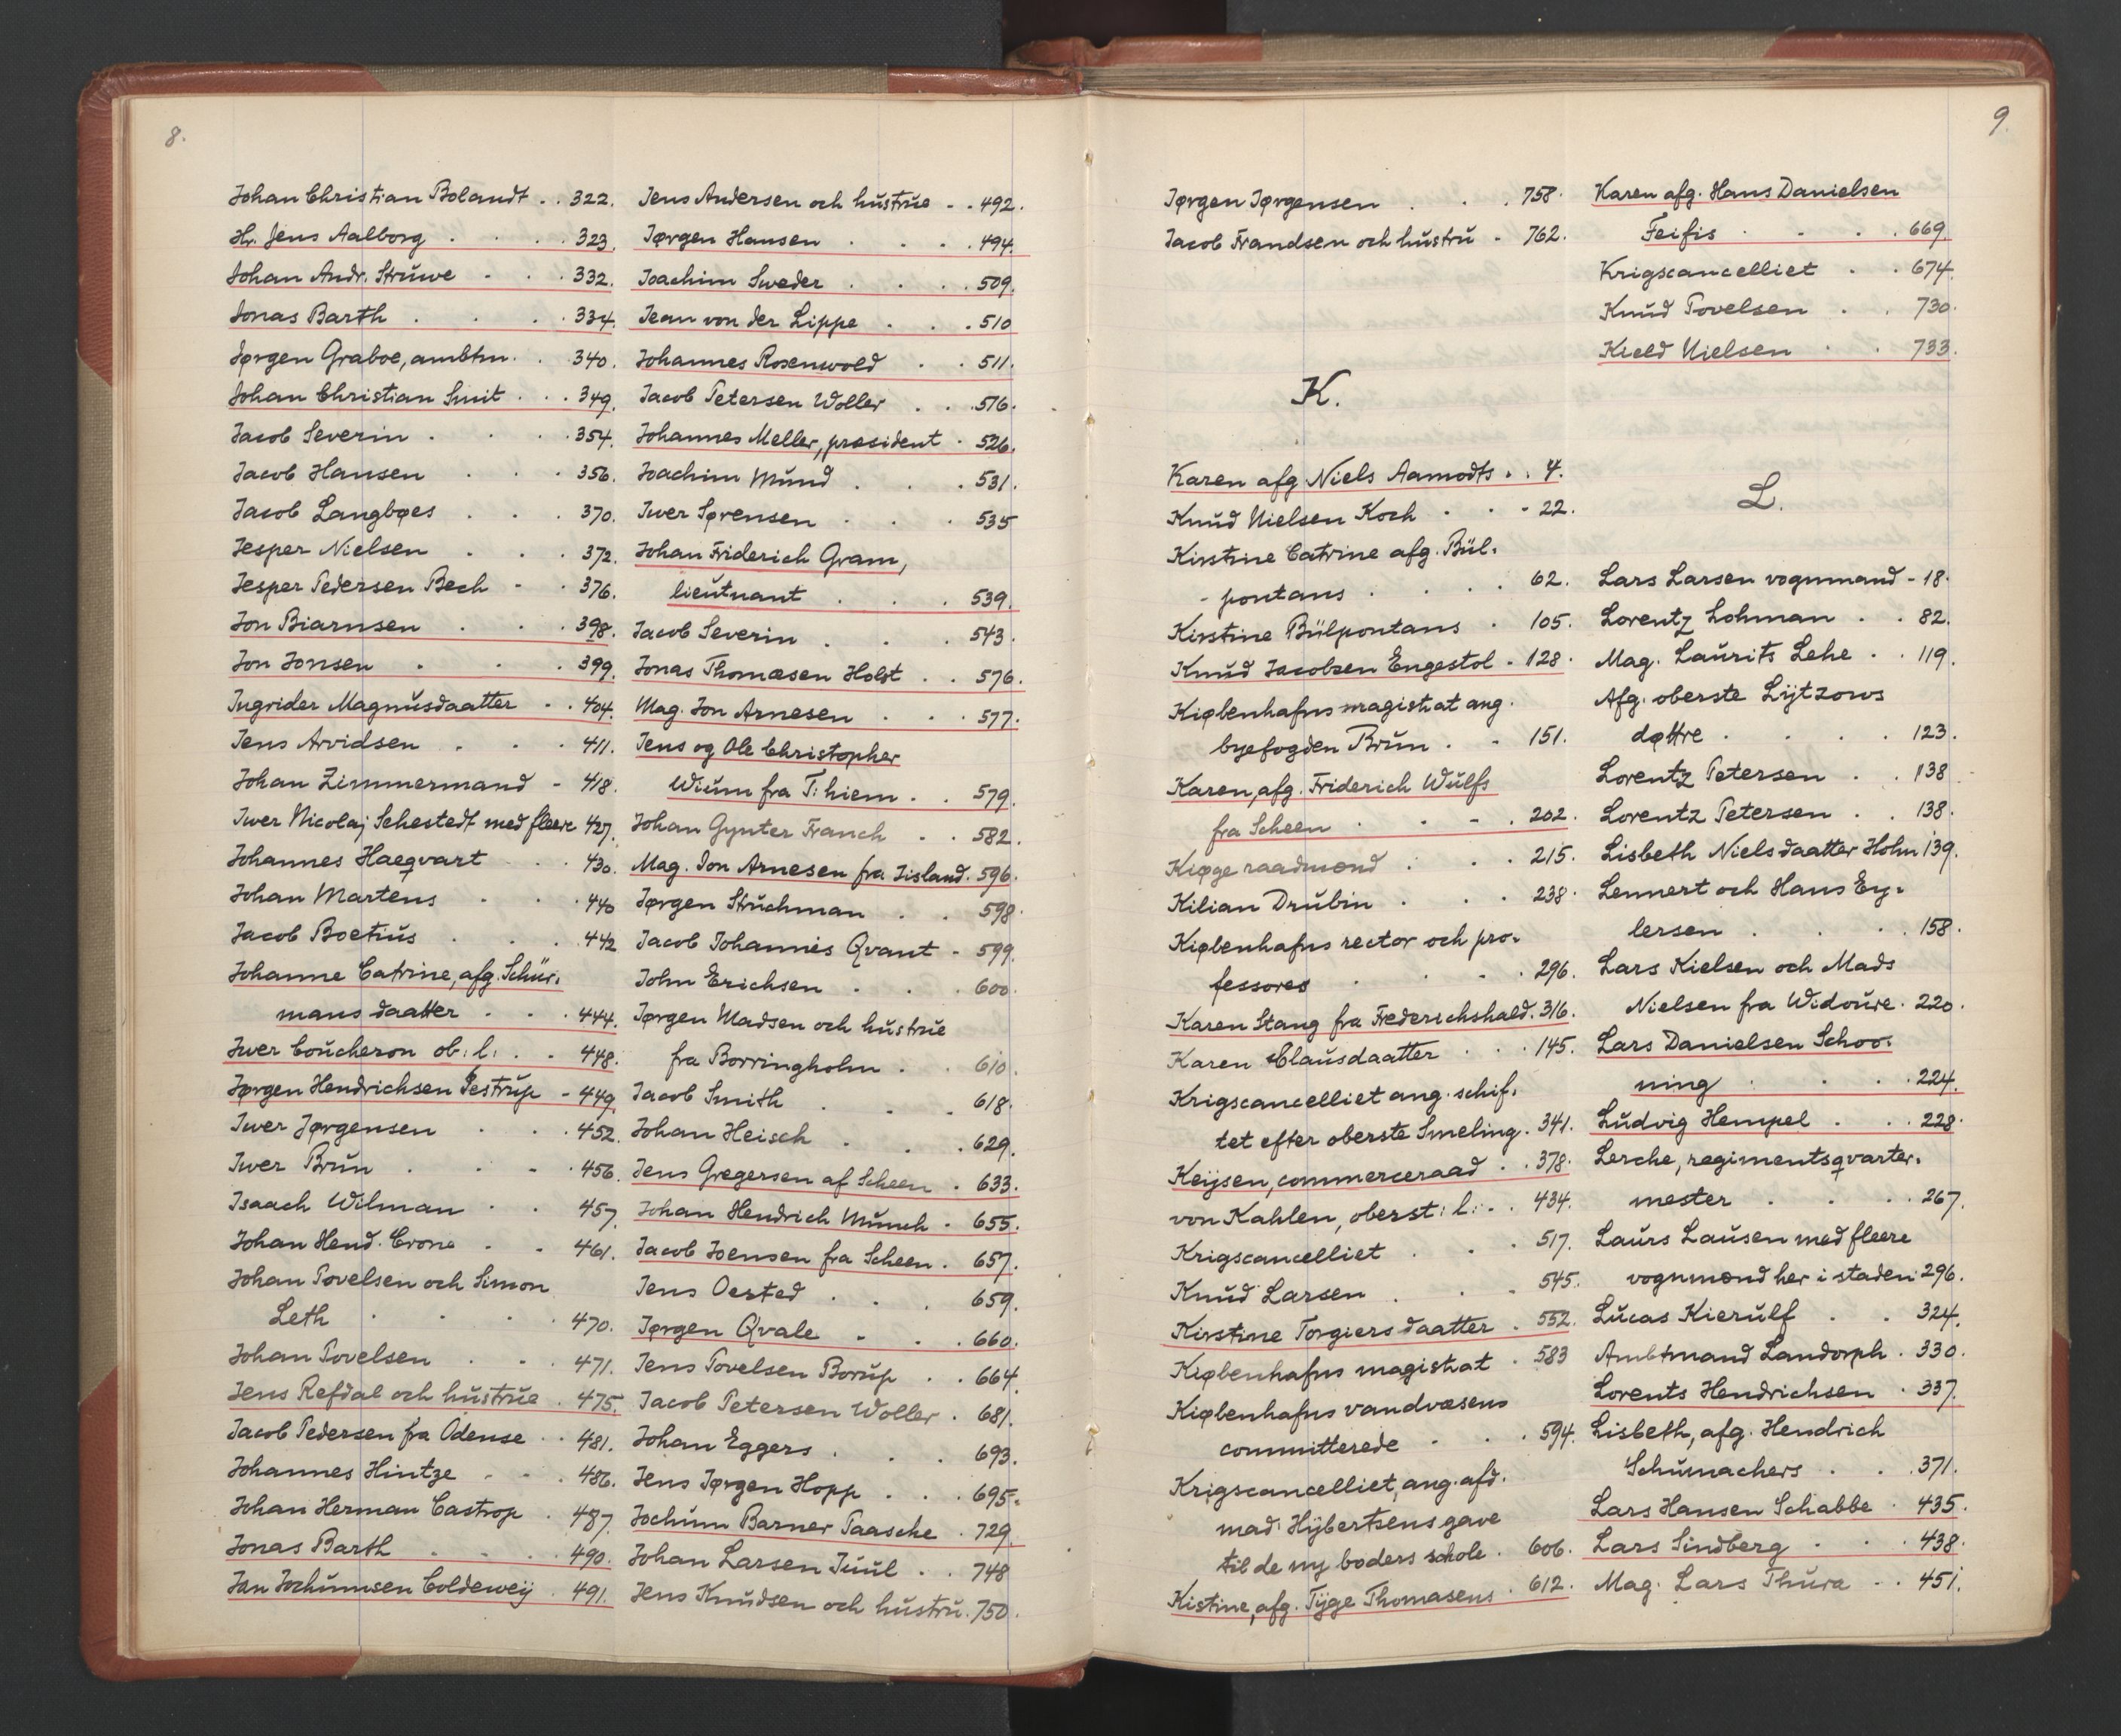 8.
Johan Christian Bolandt . . 322.
Hr. Jens Aalborg . . . . 323.
Johan Andr. Strüwe - . . 332.
Jonas Barth . . . . 334.
Jørgen Graboe, ambtm. . . 340.
Johan Christian Smit . . . 349.
Jacob Severin . . . . 354.
Jacob Hansen . . . 356.
Jacob Langbøes . . . 370.
Jesper Nielsen . . . 372.
Jesper Pedersen Bech - . 376.
Jon Biarnsen . . . 398.
Jon Jonsen . . . 399.
Ingrider Magnusdaatter . . 404.
Jens Arvidsen . . . 411.
Johan Zimmermand - 418.
Iwer Nicolaj Sehestedt med fleere 427.
Johannes Haeqvart . . . 430.
Johan Martens . . . 440
Jacob Boetius . . . 442
Johanne Catrine, afg. Schür-
mans daatter . . . 444.
Iwer Coucheron ob: l: . . 448.
Jørgen Hendrichsen Sestrup - 449.
Iwer Jørgensen . . . 452.
Iwer Brun . . - . 456.
Isaach Wilman . . 457.
Johan Hend. Crone . . 461.
Johan Povelsen och Simon
Leth . . . . 470.
Johan Povelsen . . . 471.
Jens Refdal och hustrue . 475.
Jacob Pedersen fra Odense . . 481.
Johannes Hintze - . . 486.
Johan Herman Castrop . 487.
Jonas Barth . . . . 490.
Jan Jochumsen Coldeweij . 491.
Jens Andersen och hustrue - . 492.
Jørgen Hansen . . . . 494.
Joachim Sweder . . . . 509.
Jean von der Lippe . . . 510
Johannes Rosenwold . . 511.
Jacob Petersen Woller . . . 516.
Johannes Meller, præsident . 526.
Joachim Mund . . . 531.
Iwer Sørensen . . . 535
Johan Friderich Gram,
lieutnant . . . 539.
Jacob Severin . . . 543.
Jonas Thomæsen Holst . . 576.
Mag. Jon Arnesen . . . 577.
Jens og Ole Christopher
Wium fra T:hiem . . 579.
Johan Gynter Franch . . 582.
Mag. Jon Arnesen fra Iisland. 596.
Jørgen Struchman . . 598.
Jacob Johannes Qvant - 599.
John Erichsen . . . 600.
Jørgen Madsen och hustrue
fra Borringholm . . 610.
Jacob Smith . . - 618.
Johan Heisch . . . 629.
Jens Gregersen af Scheen . 633.
Johan Hendrich Munch . 655.
Jacob Joensen fra Scheen . 657.
Jens Oersted . . . 659.
Jørgen Qvale - . . 660.
Jens Povelsen Borup . . 664.
Jacob Petersen Woller . 681.
Johan Eggers . . . 693.
Jens Jørgen Hopp . . . 695.
Jochum Barner Paasche . 729.
Johan Larsen Juul . . 748
Jens Knudsen och hustru . 750.
9.
Jørgen Jørgensen . . . 758.
Jacob Frandsen och hustru - 762.
K.
Karen afg. Niels Aamodts . . 4.
Knud Nielsen Koch . . - 22.
Kirstine Catrine afg. Bül-
- pontans . . . . 62.
Kirstine Bülpontans . 105.
Knud Jacobsen Engestol - 128.
Kiøbenhafns magistrat ang.
byefogden Brun . - 151.
Karen, afg. Friderich Wulfs
fra Scheen . . - . 202.
Kiøge raadmænd . . . 215.
Kilian Drubin . . . 238.
Kiøbenhafns rector och pro-
fessores . . - . 296.
Karen Stang fra Frederichshald. 316.
Karen Clausdaatter . . . 145.
Krigscancelliet ang. schif-
tet efter oberste Smeling . 341.
Keijsen, commerceraad . . 378.
von Kahlen, oberst: l: . . 434.
Krigscancelliet . . . 517.
Knud Larsen . . - 545.
Kirstine Torgiersdaatter . 552.
Kiøbenhafns magistrat . 583
Kiøbenhafns vandvæsens
committerede . . . 594.
Krigscancelliet, ang. afd.
mad: Hÿbertsens gave
til de ny boders schole . 606.
Kistine, afg. Tÿge Thomasens . 612.
Karen afg. Hans Danielsen
Feifis . . . . 669.
Krigscancelliet . . 674.
Knud Povelsen . . 730.
Kield Nielsen . . 733.
L.
Lars Larsen vognmand - 18.
Lorentz Lohman . . 82.
Mag. Laurits Lehe . . 119.
Afg. oberste Lÿtzows
døttre . . . . 123.
Lorentz Petersen . . 138
Lorentz Petersen . . 138.
Lisbeth Nielsdaatter Holm 139.
Lennert och Hans Ey-
lersen . . . . 158.
Lars Kielsen och Mads
Nielsen fra Widoure . 220.
Lars Danielsen Schoo-
ning . . . . 224.
Ludvig Hempel . . . 228.
Lerche, regimentsqvarter-
mester . . . . 267.
Laurs Lausen med fleere
vognmænd her i staden 296.
Lucas Kierulf . . 324.
Ambtmand Landorph . 330.
Lorents Hendrichsen . 337.
Lisbeth, afg. Hendrich
Schumachers . . . 371.
Lars Hansen Schabbe . 435.
Lars Sindberg . . . 438.
Mag. Lars Thura . . 451.